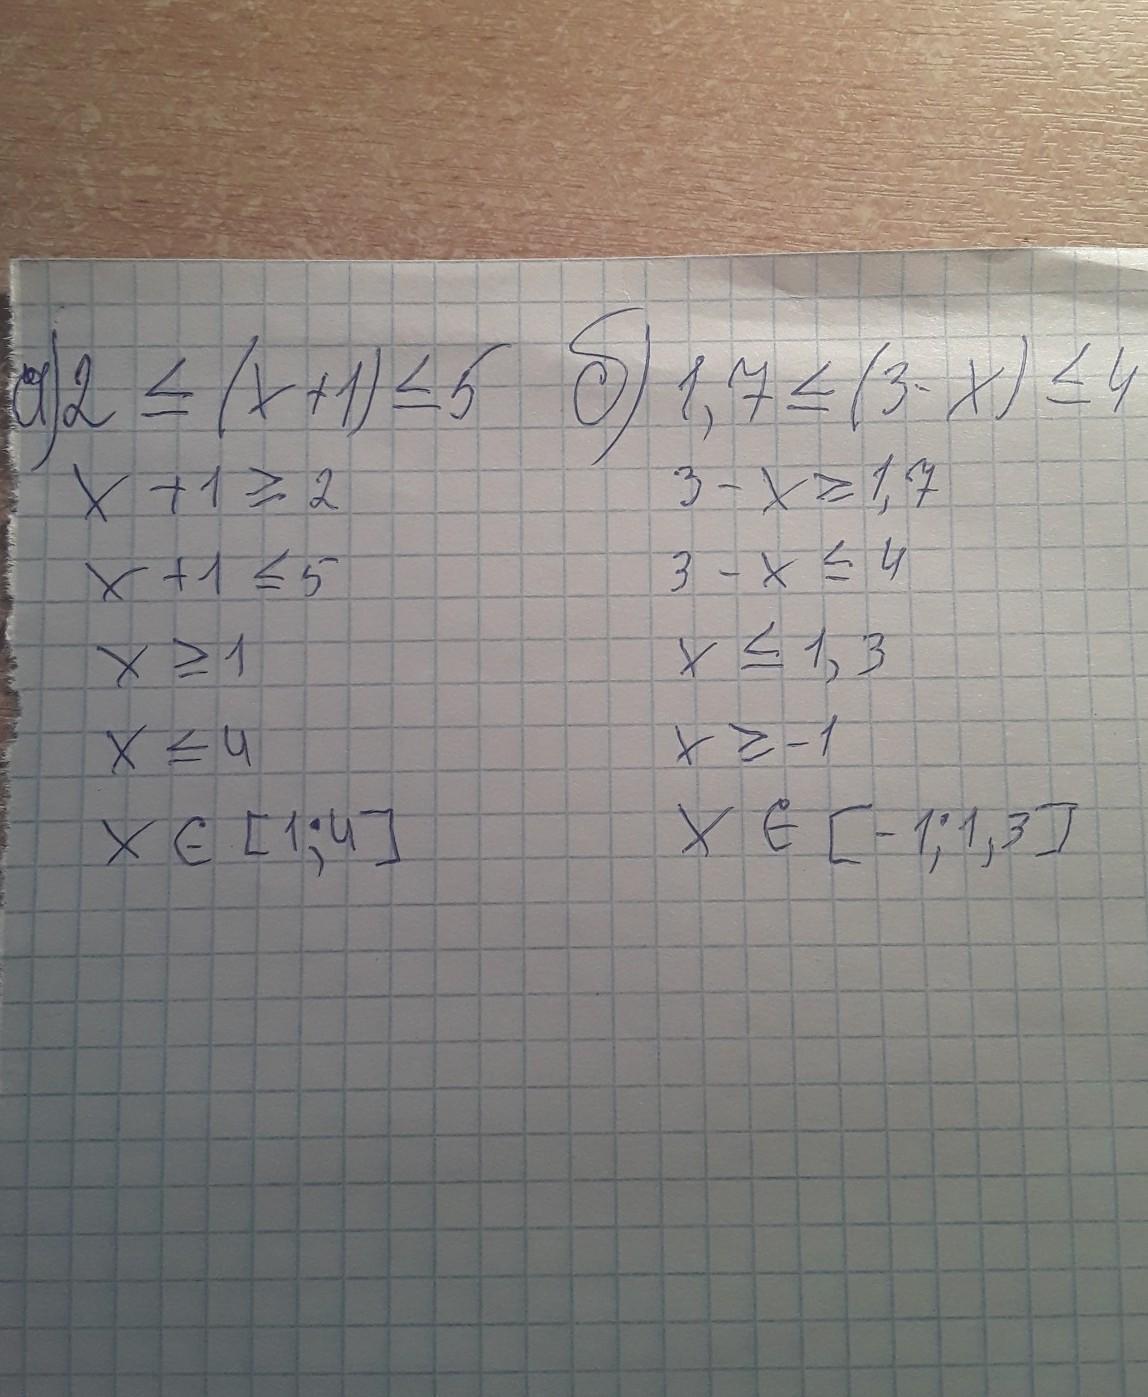 а) 2 ≤ (x+1) ≤ 5
x + 1 ≥ 2
x + 1 ≤ 5
x ≥ 1
x ≤ 4
x ∈ [1;4]
б) 1,7 ≤ (3-x) ≤ 4
3 - x ≥ 1,7
3 - x ≤ 4
x ≤ 1,3
x ≥ -1
x ∈ [-1;1,3]